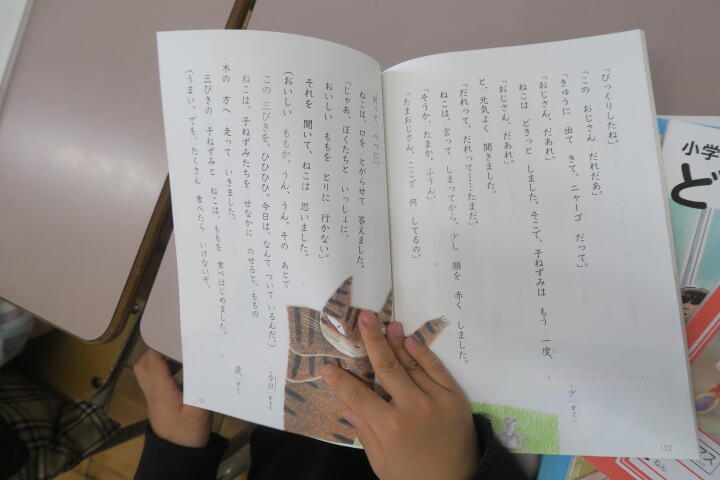 「びっくりしたね。」
「この おじさん だれだあ。」
「きゅうに 出て きて、ニャーゴ だって。」
「おじさん、だあれ。」
ねこは どきっと しました。そこで、子ねずみは もう 一度、
「おじさん、だあれ。」
と、元気よく 聞きました。
「だれって、だれって……たまだ。」
ねこは、言って しまってから、少し 顔を 赤く しました。
「そうか、たまか、ふうん。」
「たまおじさん、ここで 何 してるの。」
少 すこし
122
「何って、べつに。」
ねこは、口を とがらせて 答えました。
「じゃあ、ぼくたちと いっしょに、
おいしい ももを とりに 行かない。」
それを 聞いて、ねこは 思いました。
(おいしい ももか。うん、うん。その あとで
この 三びきを。ひひひひ。今日は、なんて ついて いるんだ。)
ねこは、子ねずみたちを せなかに のせると、ももの
木の 方へ 走って いきました。
三びきの 子ねずみと ねこは、ももを 食べはじめました。
(うまい。でも、たくさん 食べたら いけないぞ。
今日 きょう
走 はしる
小学
ど